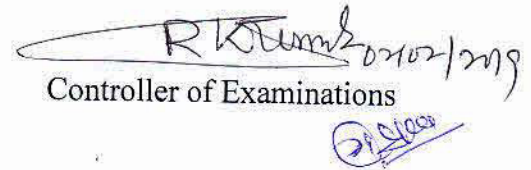 R K Kumar 02/02/2019
Controller of Examinations